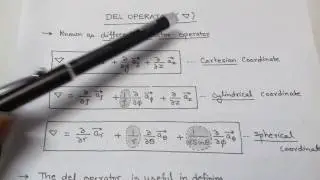 DEL OPERATOR (∇)
→ Known as operator
∂/∂z a⃗z → Cartesian Coordinate
∇ = ∂/∂ρ a⃗ρ + 1/ρ ∂/∂φ a⃗φ + ∂/∂z a⃗z → Cylindrical Coordinate
∇ = ∂/∂r a⃗r + 1/r ∂/∂θ a⃗θ + 1/(r sinθ) ∂/∂φ a⃗φ → Spherical Coordinate
→ The del operator is useful in defining